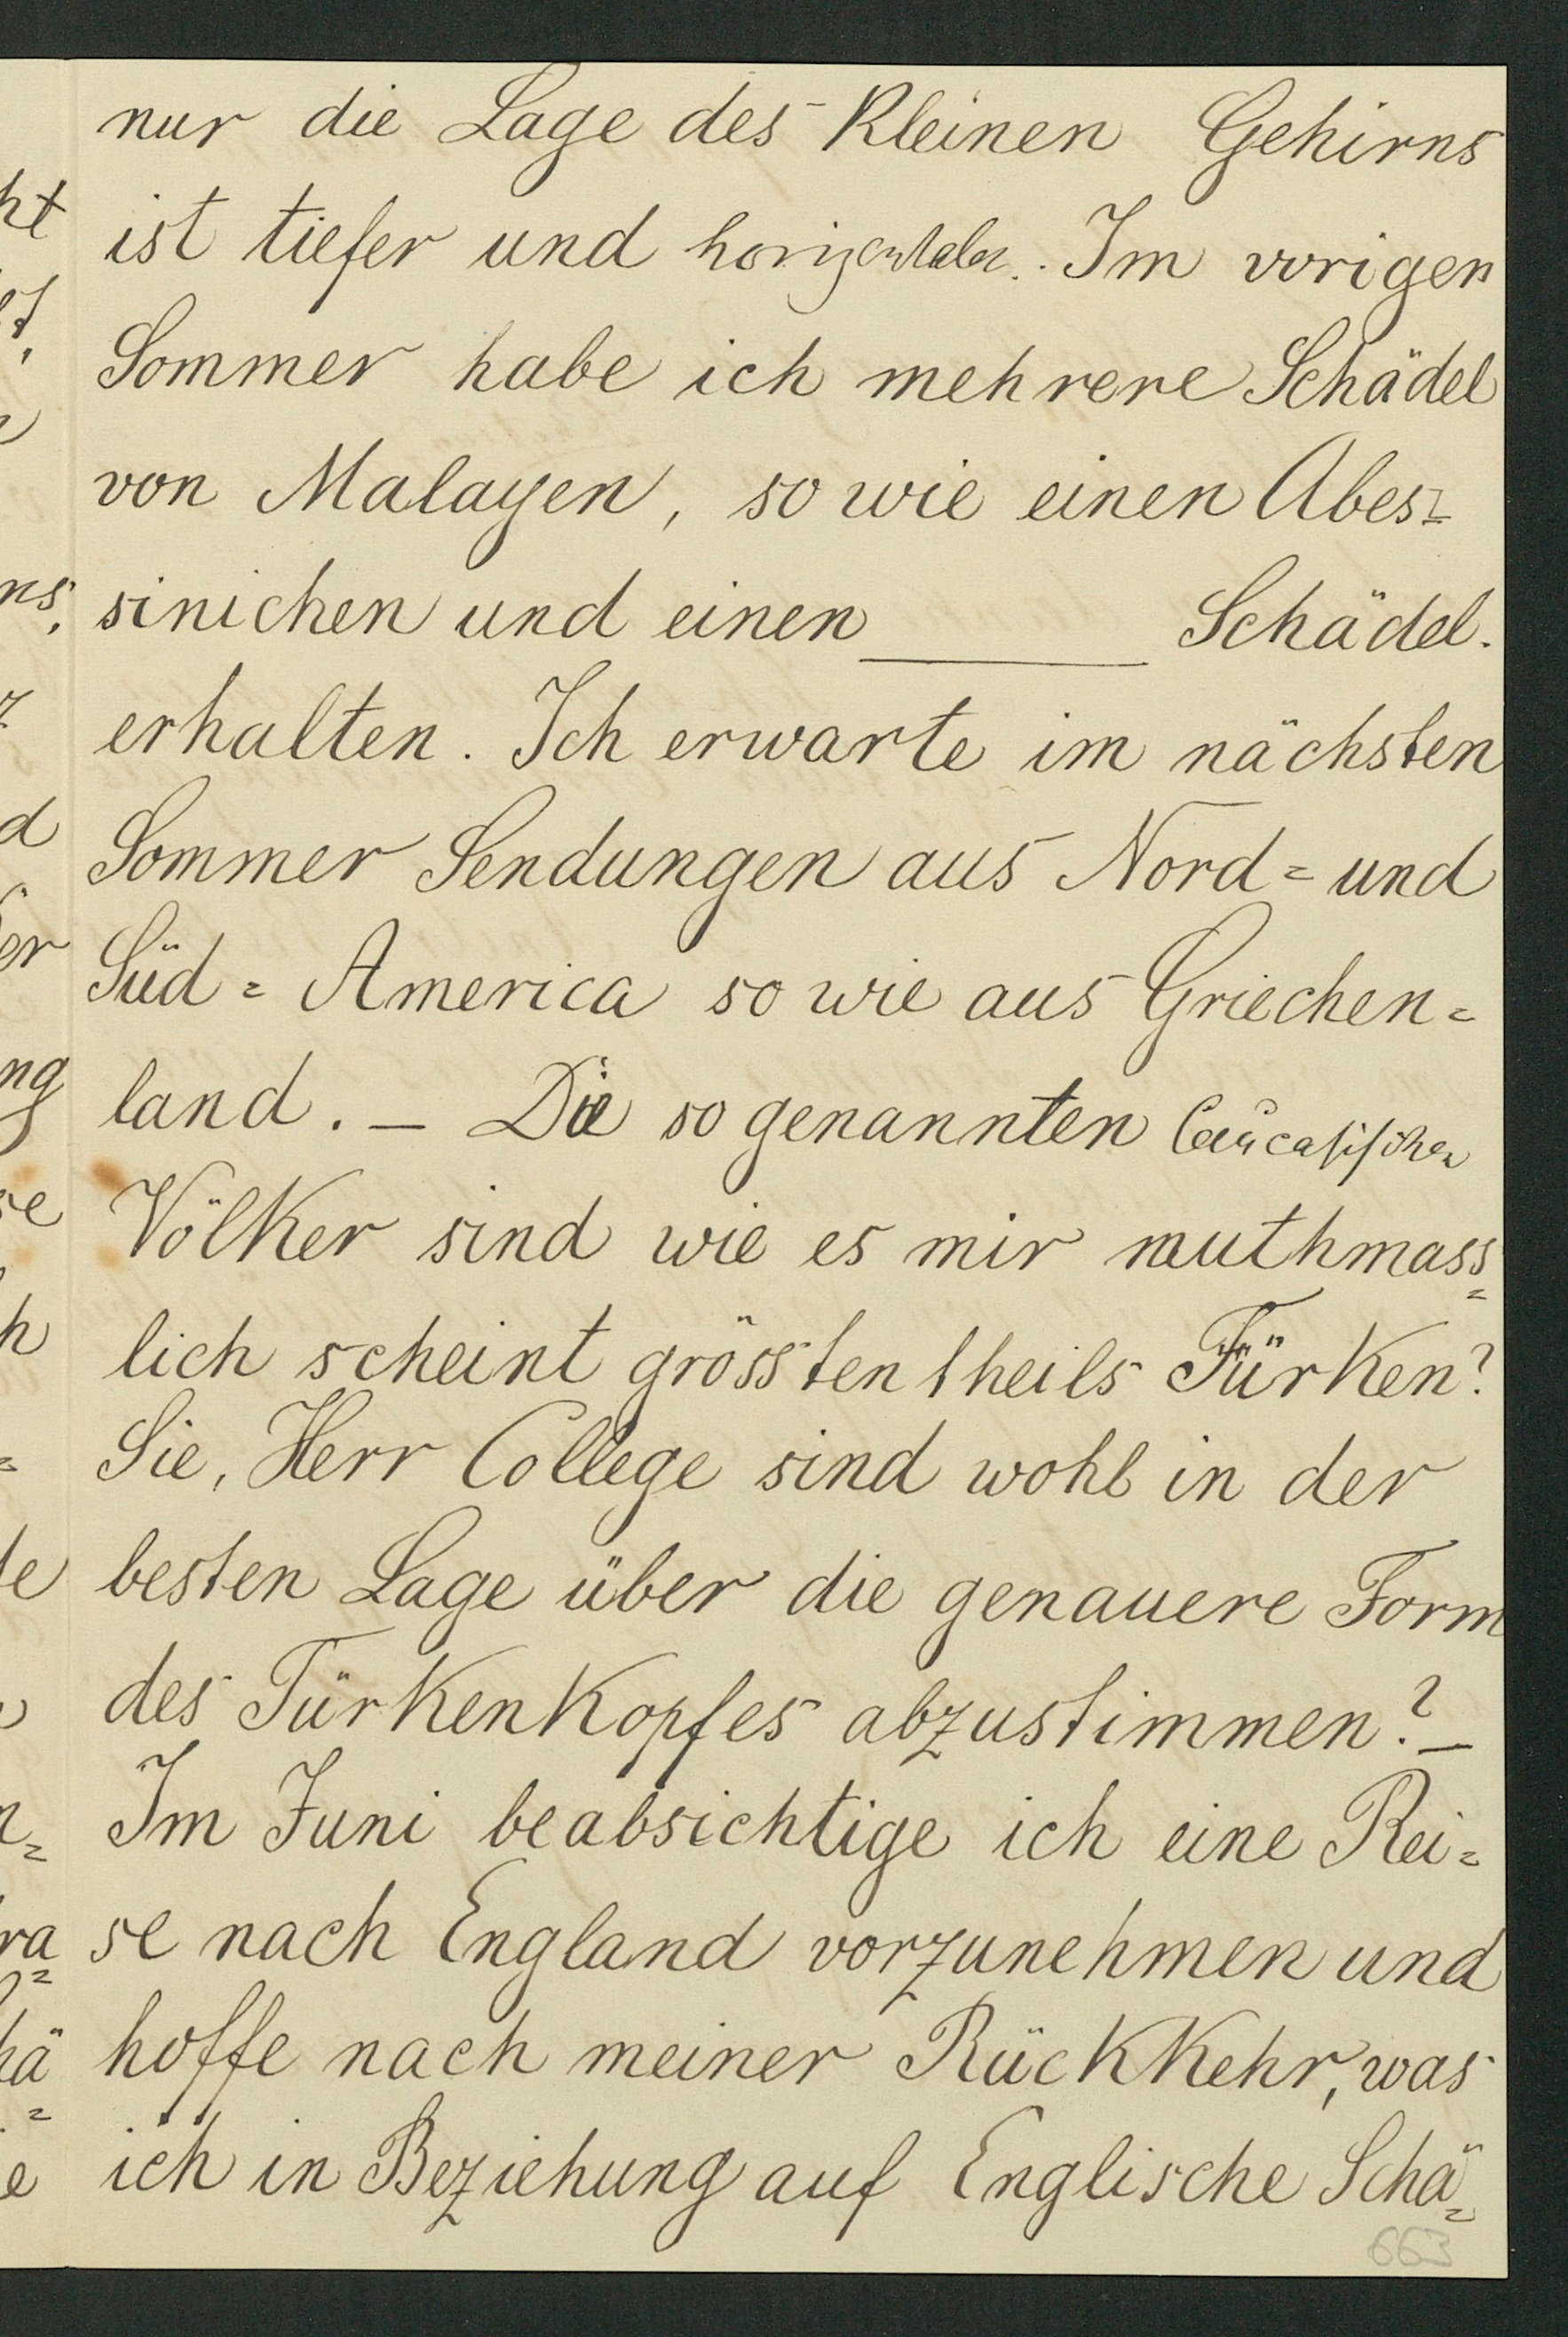 nur die Lage des Kleinen Gehirns
ist tiefer und horizontaler. Im vorigen
Sommer habe ich mehrere Schädel
von Malayen, so wie einen Abes=
sinichen und einen ______ Schädel.
erhalten. Ich erwarte im nächsten
Sommer Sendungen aus Nord= und
Süd= America so wie aus Griechen=
land. — Die so genannten Caucasischen
Völker sind wie es mir muthmass=
lich scheint grössten theils Türken?
Sie, Herr College sind wohl in der
besten Lage über die genauere Form
des TürkenKopfes abzustimmen? —
Im Juni beabsichtige ich eine Rei=
se nach England vorzunehmen und
hoffe nach meiner Rückkehr, was
ich in Beziehung auf Englische Schä=
663